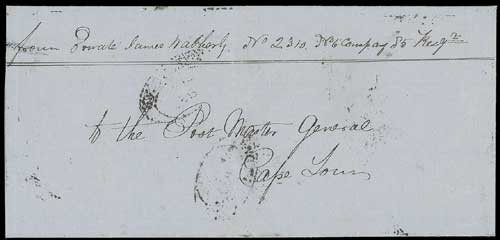 from Private James No 2310. No 6 Compay 85 Regt
to the Post Master General
Cape Town